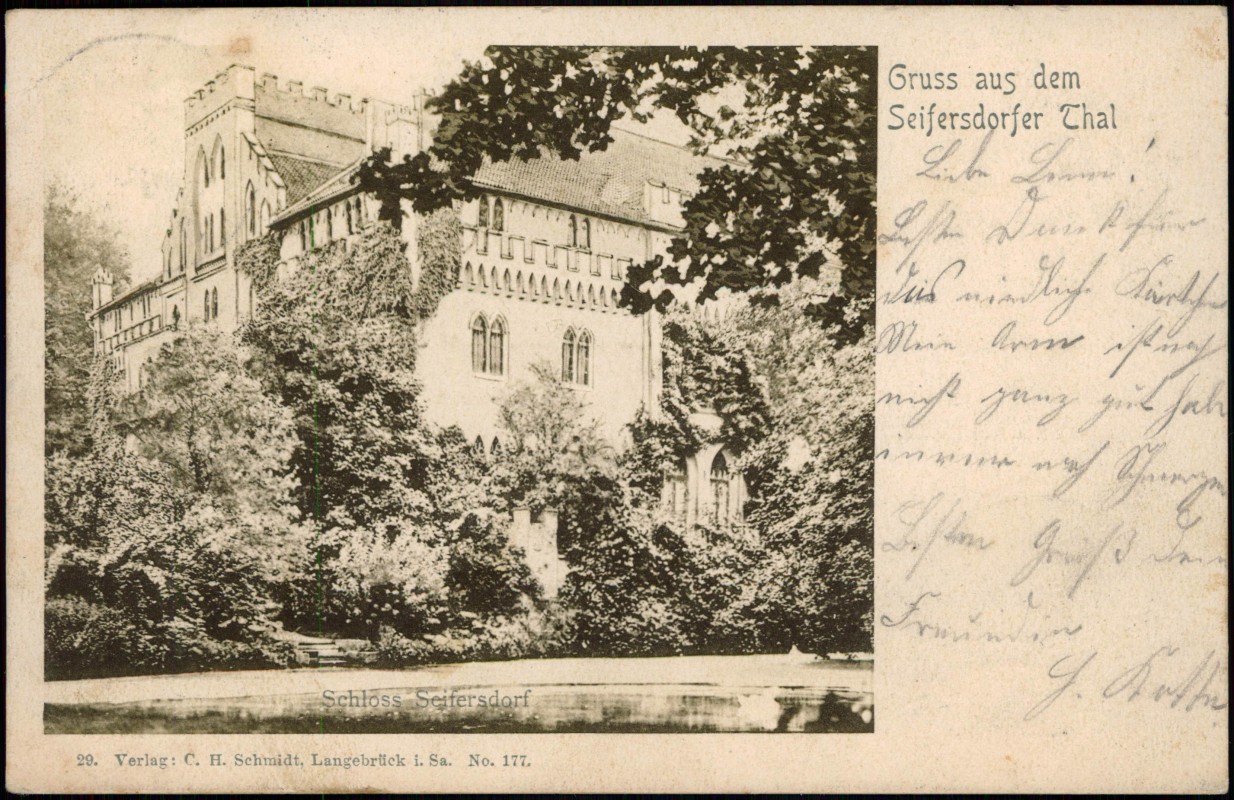 Gruss aus dem
Seifersdorfer Thal
Liebe
Besten Dank für
das niedliche Kärtchen
Mein Arm ist noch
nicht ganz gut habe
immer noch Schmerzen
Besten Gruß Dein
Freundin
H.
Schloss Seifersdorf
29. Verlag: C. H. Schmidt, Langebrück i. Sa. No. 177.